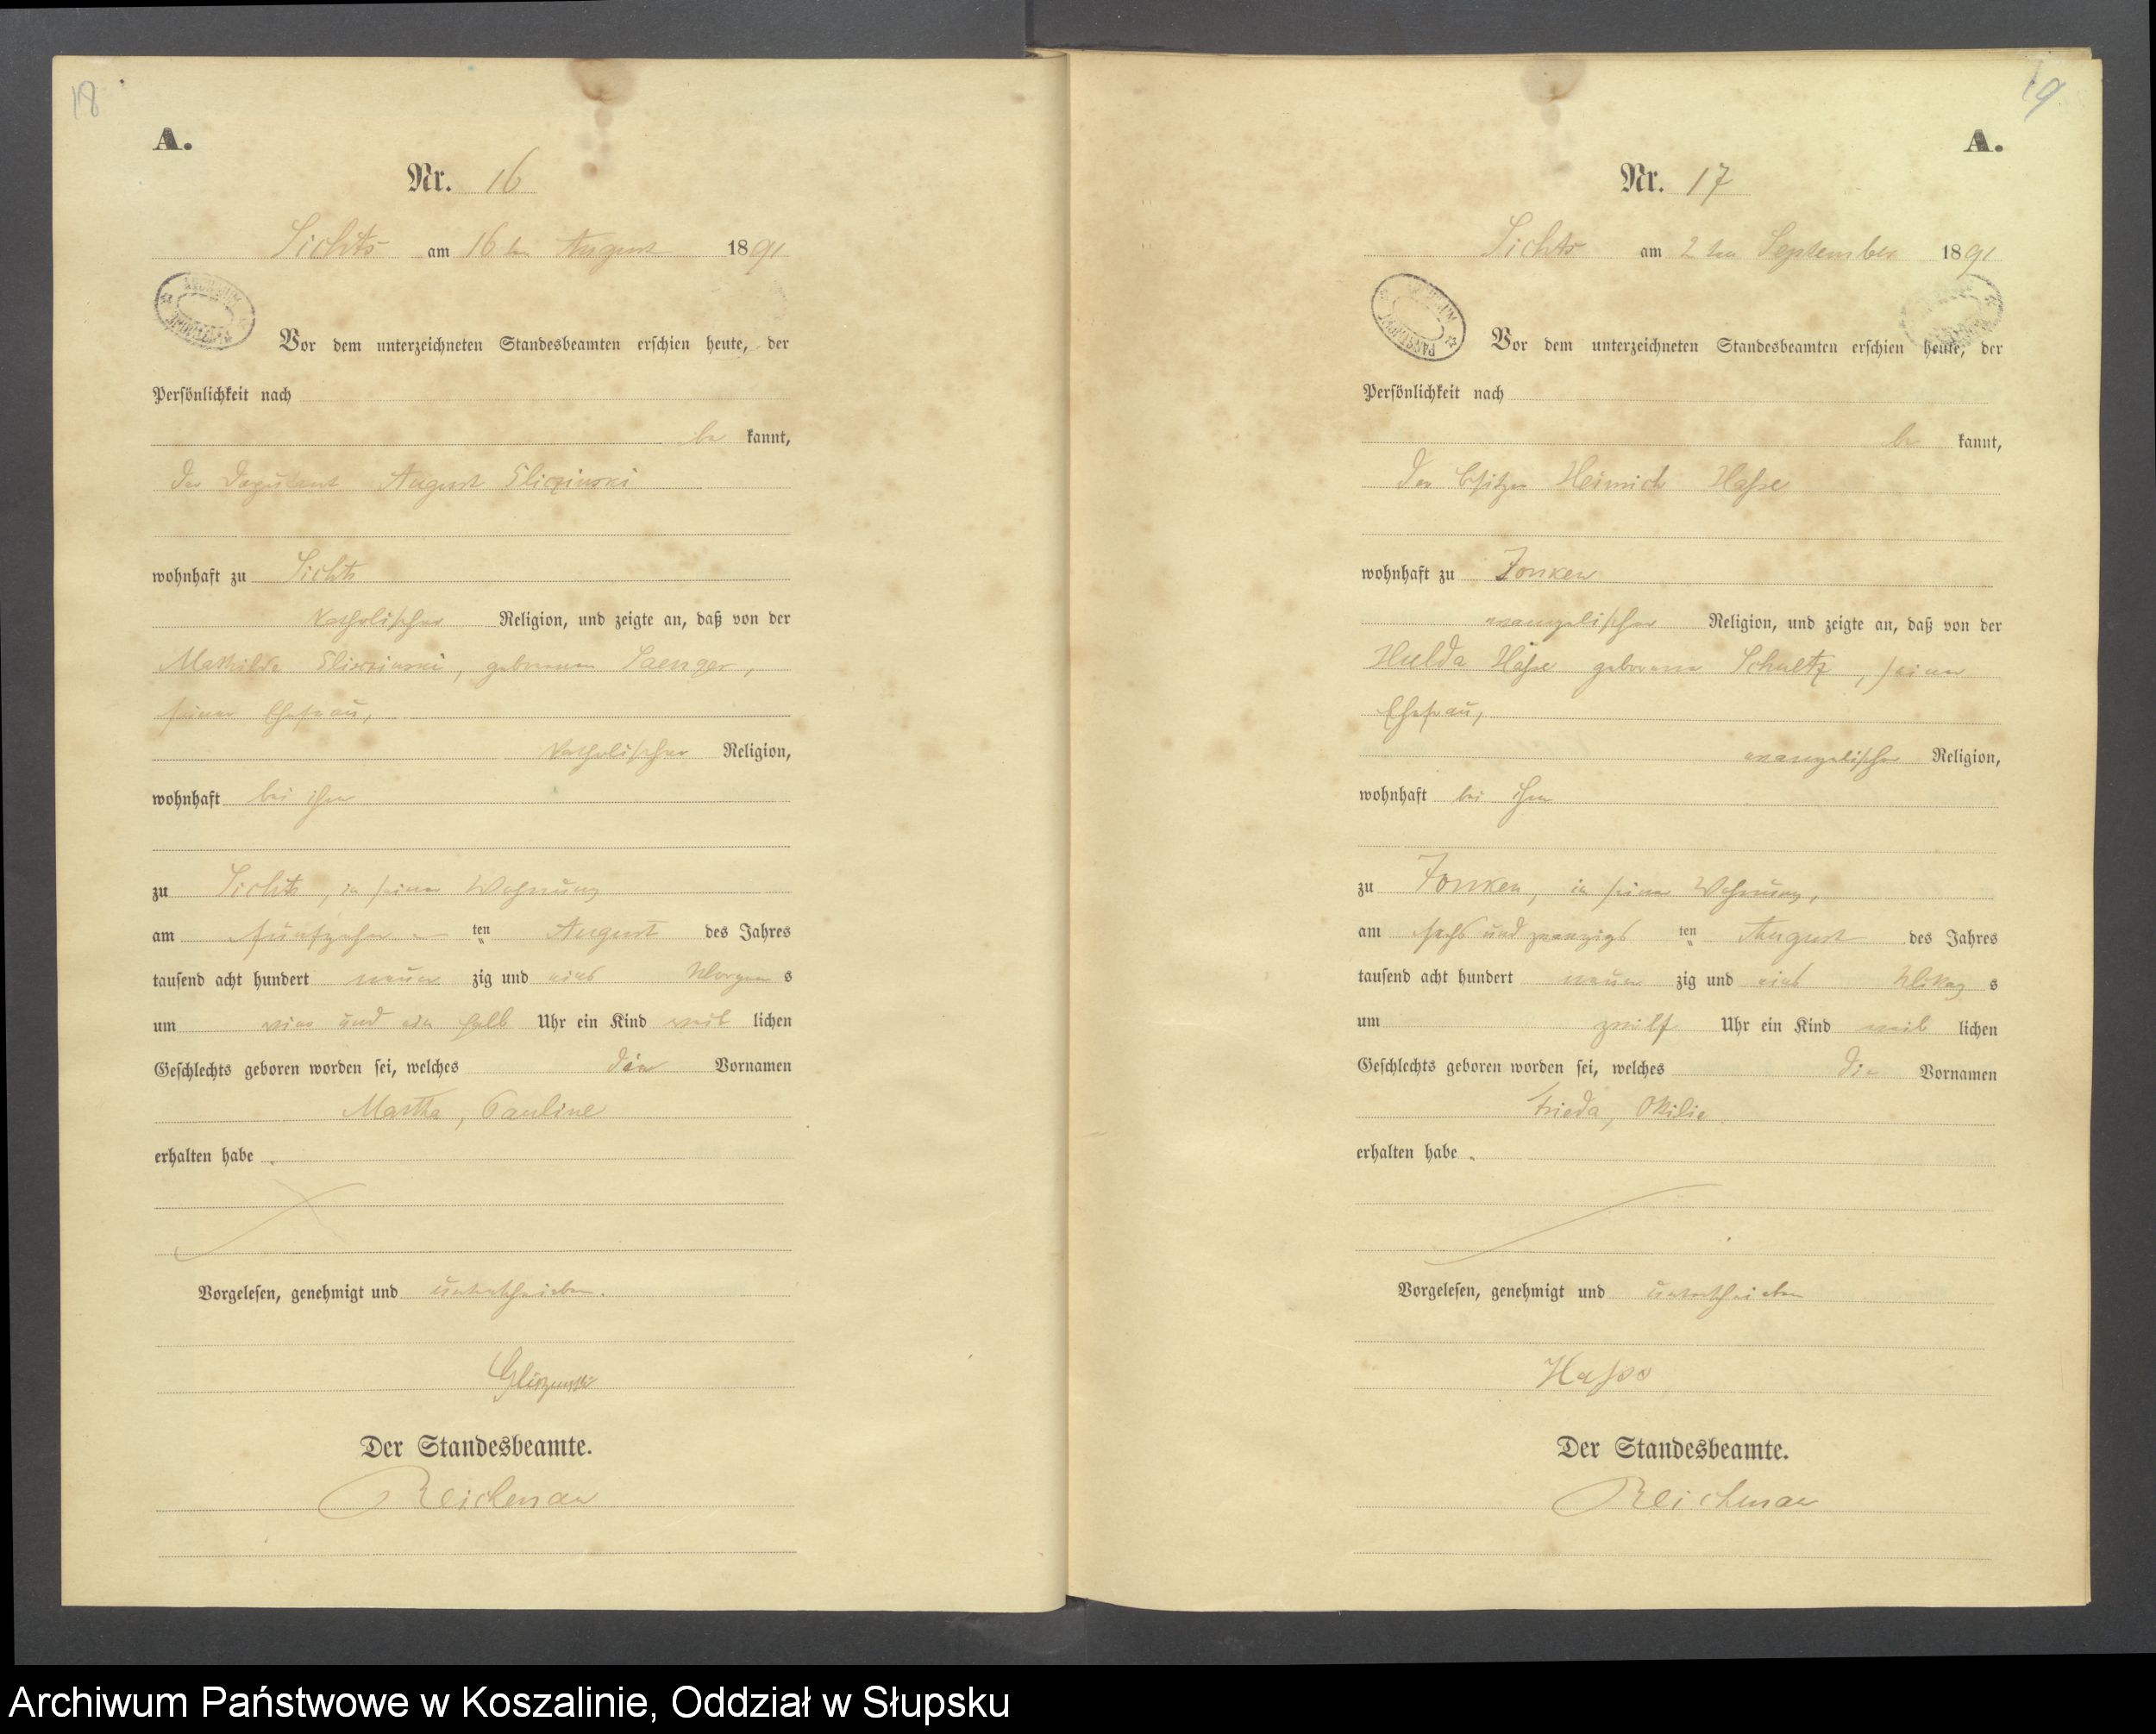 18
A.
Nr. 16
Lichts am 16ten August 1891
Vor dem unterzeichneten Standesbeamten erschien heute, der
Persönlichkeit nach
be kannt,
Der Deputant August Gliszinski
wohnhaft zu
katholischer Religion, und zeigte an, daß von der
Mathilde Gliszinski, geborenen Saenger,
seiner Ehefrau,
katholischer Religion,
wohnhaft bei ihm
zu in seiner Wohnung
am fünfzehn ten August des Jahres
tausend acht hundert neun zig und eins Morgen s
um vier und ein halb Uhr ein Kind weib lichen
Geschlechts geboren worden sei, welches die Vornamen
Martha, Pauline
erhalten habe.
Vorgelesen, genehmigt und unterschrieben.
Der Standesbeamte.
19
A.
Nr. 17
am 2ten September 1891
Vor dem unterzeichneten Standesbeamten erschien heute, der
Persönlichkeit nach
be kannt,
Der Besitzer Heinrich Hasse
wohnhaft zu Zonken
evangelischer Religion, und zeigte an, daß von der
Hulda Hasse geborene Schultz, seiner
Ehefrau,
evangelischer Religion,
wohnhaft bei ihm
zu Zonken, in seiner Wohnung,
am sechs und zwanzigs ten August des Jahres
tausend acht hundert neun zig und eins Mittag s
um zwölf Uhr ein Kind weib lichen
Geschlechts geboren worden sei, welches die Vornamen
Frieda, Ottilie
erhalten habe.
Vorgelesen, genehmigt und unterschrieben
Hasse
Der Standesbeamte.
Archiwum Państwowe w Koszalinie, Oddział w Słupsku